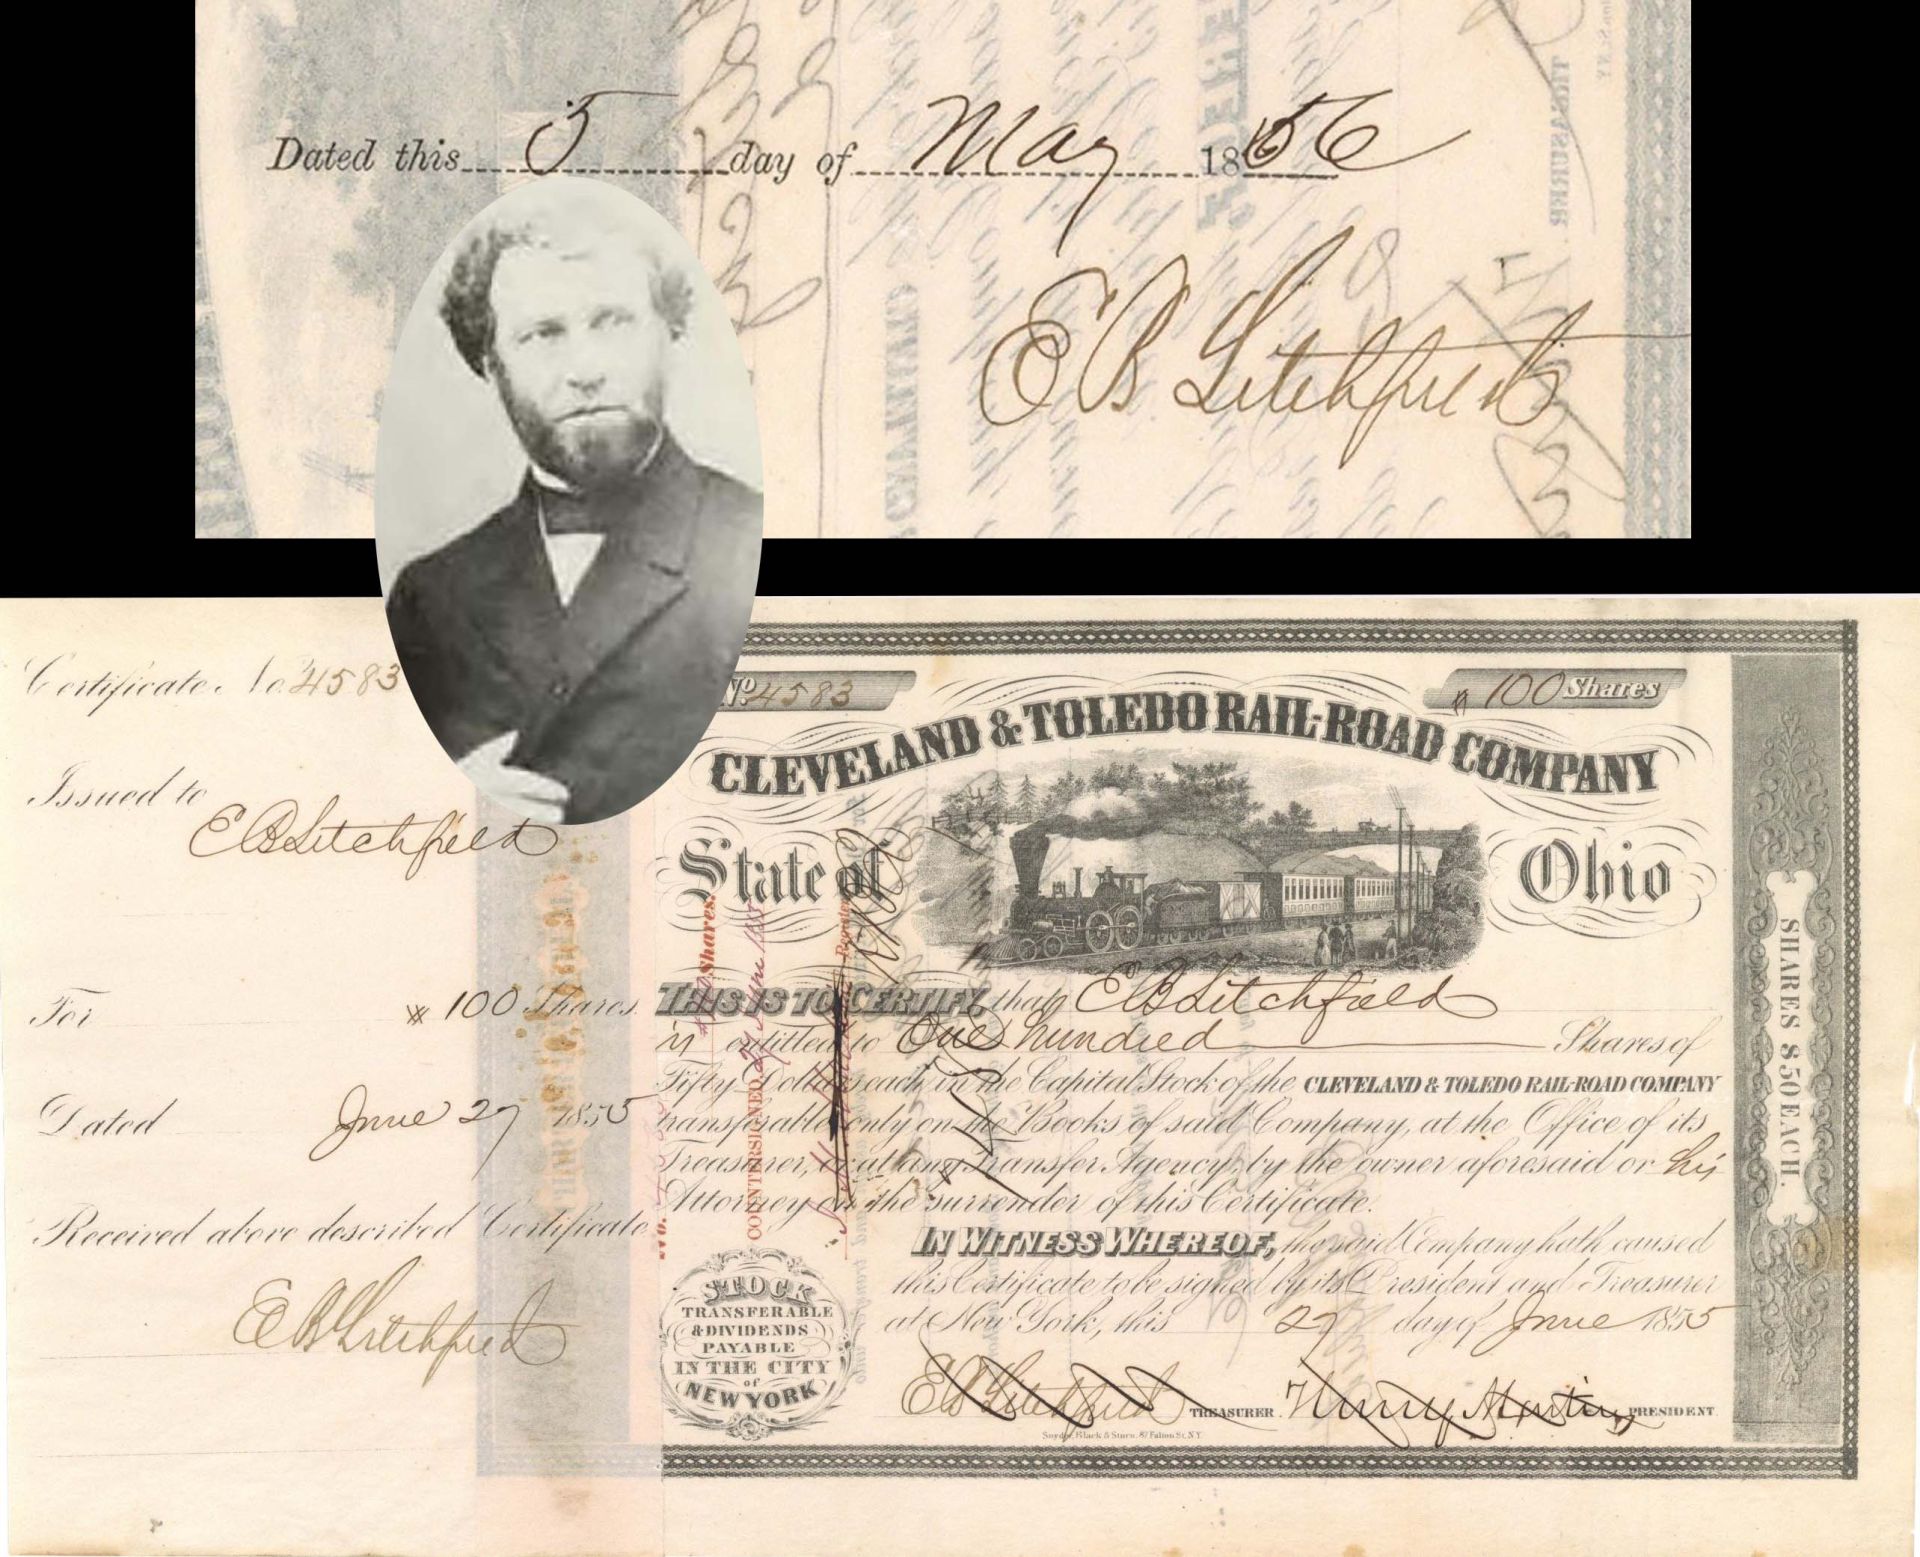 Dated this 5 day of May 1856
E B Litchfield
Certificate No 4583
Issued to
E B Litchfield
For # 100 Shares
Dated June 27 1855
Received above described Certificate
E B Litchfield
No. 4583
# 100 Shares
CLEVELAND & TOLEDO RAIL-ROAD COMPANY
State of Ohio
THIS IS TO CERTIFY, that E B Litchfield
is entitled to One hundred Shares of
Fifty Dollars each in the Capital Stock of the CLEVELAND & TOLEDO RAIL-ROAD COMPANY
transferable only on the Books of said Company, at the Office of its
Treasurer, or at any Transfer Agency, by the owner aforesaid or his
Attorney on the surrender of this Certificate.
IN WITNESS WHEREOF, the said Company hath caused
this Certificate to be signed by its President and Treasurer
at New York, this 27 day of June 1855
E B Litchfield TREASURER. Henry Martin PRESIDENT
Snyder, Black & Sturn. 87 Fulton St. N.Y.
STOCK
TRANSFERABLE
& DIVIDENDS
PAYABLE
IN THE CITY
of
NEW YORK
No.
Shares.
COUNTERSIGNED,
Register
SHARES $50 EACH.
TREASURER